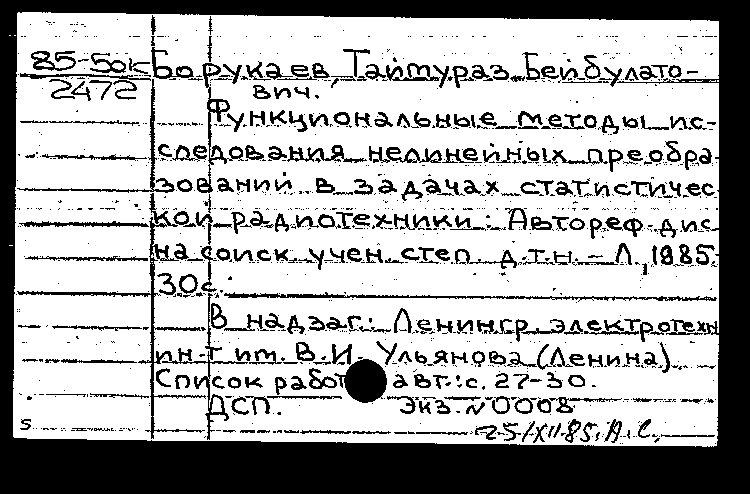 85-5ок Борукаев, Таймураз Бейбулато-
2472 вич.
Функциональные методы ис-
следования нелинейных преобра-
зований в задачах статистичес
кой радиотехники: Автореф. дис
на соиск учен. степ д.т.н. - Л., 1985.
30с.
В надзаг.: Ленингр. электротехн
ин-т им. В.И. Ульянова (Ленина)
Список работ авт.: с. 27-30.
ДСП. Экз. №0008
25/XII 85. А.С.
5